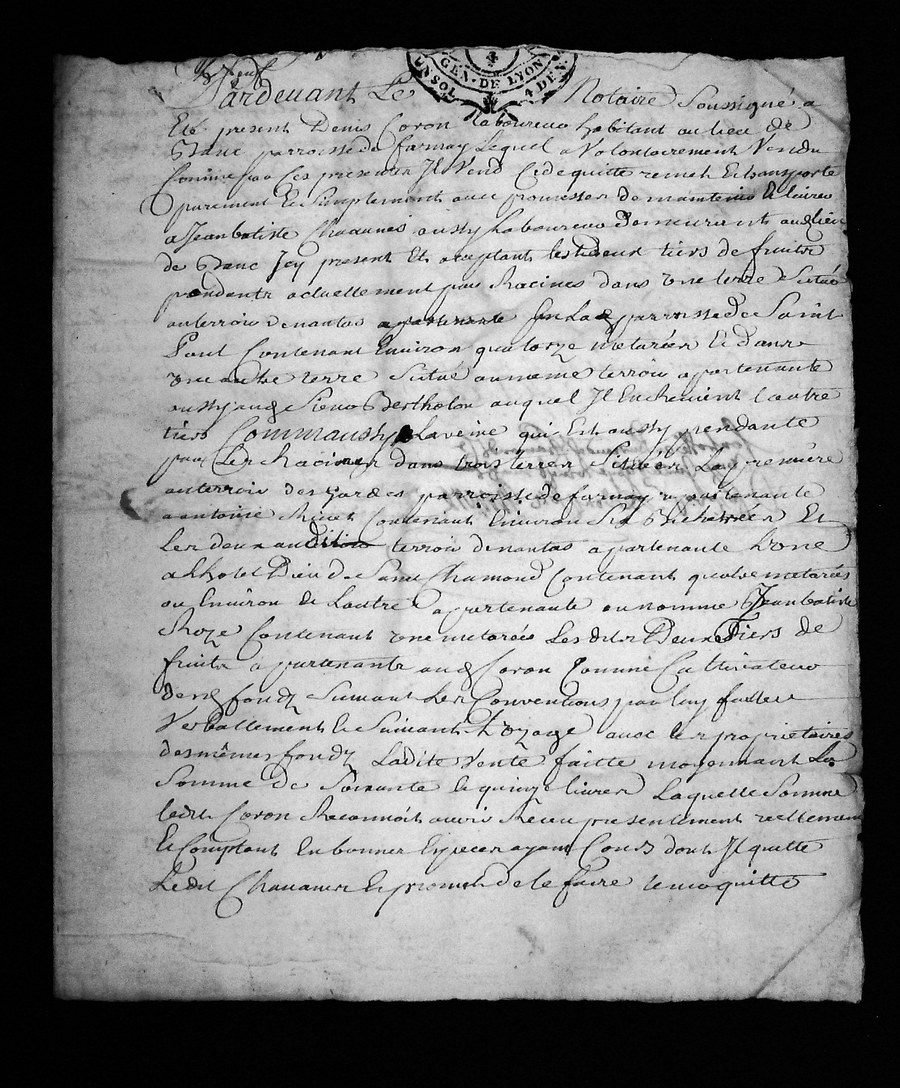 GEN. DE LYON
UN SOL 4 DEN.
Pardevant Le Notaire Soussigné a
Eté present Denis Coron Laboureur habitant au lieu de
Banc parroisse de farnay Lequel a Volontairement Vendu
Comme par Ces presentes Il Vend Cede quitte remet Et transporte
purement Et Simplement avec promesses de maintenir
a Jean batiste Chavanes aussy Laboureur demeurant audt lieu
de Banc Icy present Et aceptant les deux tiers de fruits
pendants actuellement par Racines dans une terre Situé
au terroir de nantas apartenante En La parroisse de Saint
Paul Contenant Environ quatorze metarées Et dans
une autre terre Situé au meme terroir apartenante
aussy aud Sieur Bertholon auquel Il En Revient Lautre
tiers Comm'aussy Laveine qui Est aussy pendante
par Les Racines dans trois terres Situées La premiere
au terroir des Gardes parroisse de farnay apartenante
a antoine Contenant Environ Six Bicherées Et
Les deux audit terroir de nantas apartenante L'une
a Lhotel Dieu de Saint Chamond Contenant quatre metarées
ou Environ Et Lautre apartenante au nommé Jean batiste
Roze Contenant une metarée Lesdits Deux Tiers de
fruits apartenante aud Coron Comme Cultivateur
desd fondz Suivant Les Conventions par luy faittes
Verballement Et Suivant L'uzage avec les proprietaires
des mêmes fondz Ladite Vente faitte moyennant La
Somme de Soixante Et quinze Livres Laquelle Somme
ledit Coron Reconnoit avoir Reçeu presentement reellement
Et Comptant En bonnes Especes ayant Cours dont Il quitte
Ledit Chavanes Et promet de le faire tenir quitte